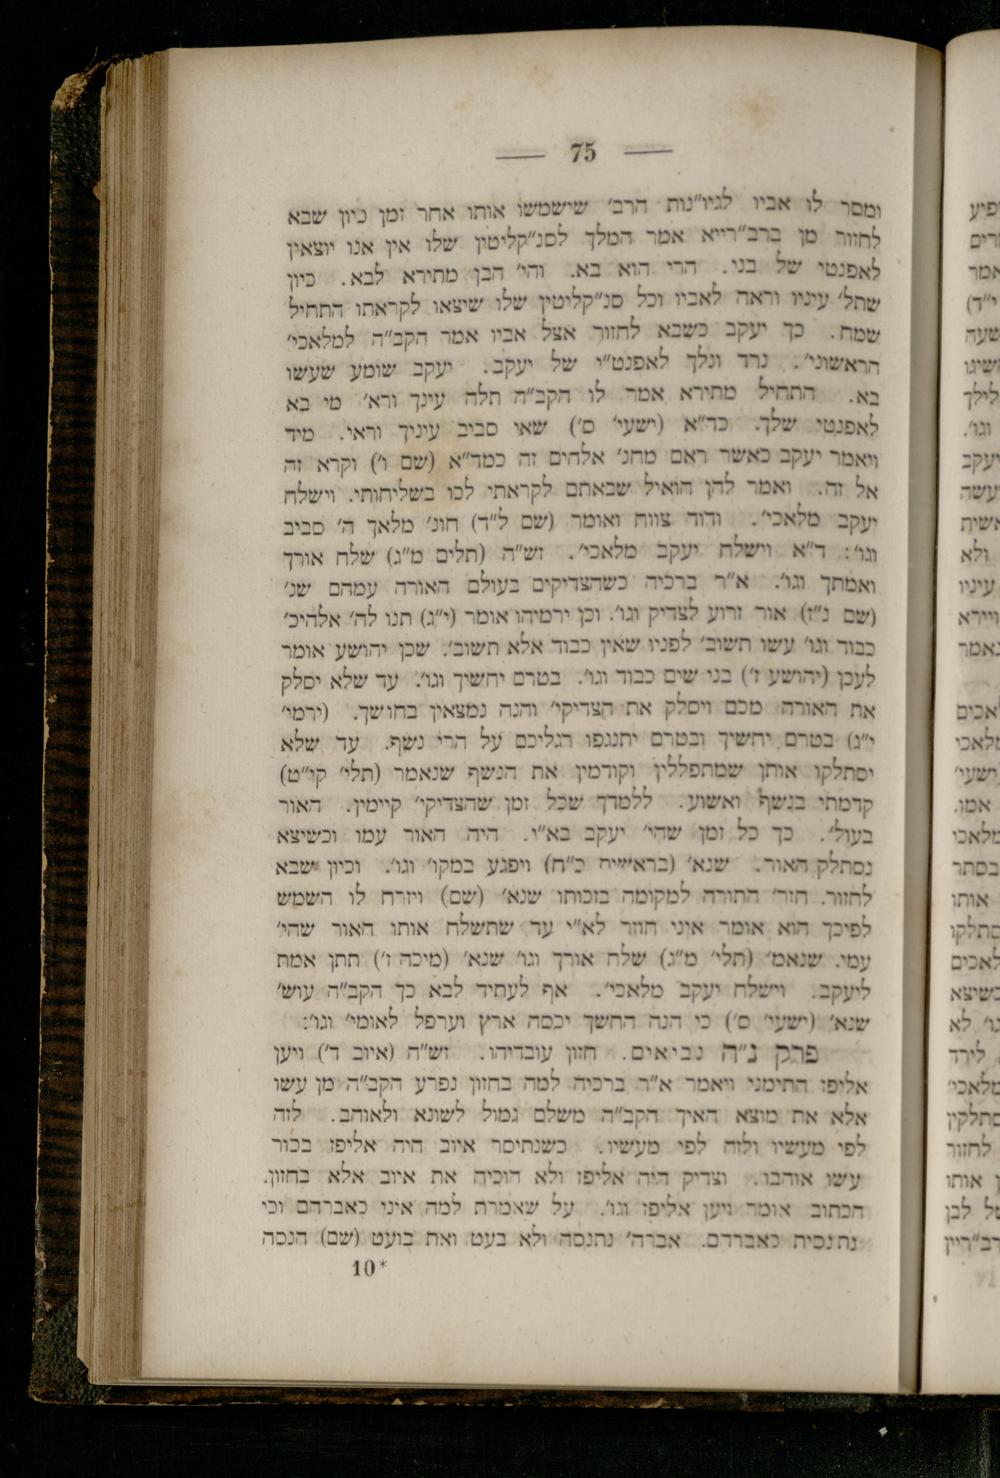 — 75 —
ומסר לו אביו לגיו"נות הרב' שישמשו אותו אחר זמן כיון שבא
לחזור מן ברב"רייא אמר המלך לסנ"קליטין שלו אין אנו יוצאין
לאפנטי של בני. הרי הוא בא. והי' הבן מתירא לבא. כיון
שתל' עיניו וראה לאביו וכל סנ"קליטין שלו שיצאו לקראתו התחיל
שמח. כך יעקב כשבא לחזור אצל אביו אמר הקב"ה למלאכי'
הראשוני'. נרד ונלך לאפנט"י של יעקב. יעקב שומע שעשו
בא. התחיל מתירא אמר לו הקב"ה תלה עינך ורא' מי בא
לאפנטי שלך. כד"א (ישעי' ס') שאי סביב עיניך וראי. מיד
ויאמר יעקב כאשר ראם מחנ' אלהים זה כמד"א (שם ו') וקרא זה
אל זה. ואמר להן הואיל שבאתם לקראתי לכו בשליחותי. וישלח
יעקב מלאכי'. ודוד צווח ואומר (שם ל"ד) חונ' מלאך ה' סביב
וגו': ד"א וישלח יעקב מלאכי'. זש"ה (תלים מ"ג) שלח אורך
ואמתך וגו'. א"ר ברכיה כשהצדיקים בעולם האורה עמהם שנ'
(שם נ"ז) אור זרוע לצדיק וגו'. וכן ירמיהו אומר (י"ג) תנו לה' אלהיכ'
כבוד וגו' עשו תשוב' לפניו שאין כבוד אלא תשוב'. שכן יהושע אומר
לעכן (יהושע ז') בני שים כבוד וגו'. בטרם יחשיך וגו'. עד שלא יסלק
את האורה מכם ויסלק את הצדיקי' והנה נמצאין בחושך. (ירמי'
י"ג) בטרם יחשיך ובטרם יתנגפו רגליכם על הרי נשף. עד שלא
יסתלקו אותן שמתפללין וקודמין את הנשף שנאמר (תלי' קי"ט)
קדמתי בנשף ואשוע. ללמדך שכל זמן שהצדיקי' קיימין. האור
בעול'. כך כל זמן שהי' יעקב בא"י. היה האור עמו וכשיצא
נסתלק האור. שנא' (בראשית כ"ח) ויפגע במקו' וגו'. וכיון שבא
לחזור. חזר' התורה למקומה בזכותו שנא' (שם) ויזרח לו השמש
לפיכך הוא אומר איני חוזר לא"י עד שתשלח אותו האור שהי'
עמי. שנאמ' (תלי' מ"ג) שלח אורך וגו' שנא' (מיכה ז') תתן אמת
ליעקב. וישלח יעקב מלאכי'. אף לעתיד לבא כך הקב"ה עוש'
שנא' (ישעי' ס') כי הנה החשך יכסה ארץ וערפל לאומי' וגו':
פרק נ"ה נביאים. חזון עובדיהו. זש"ה (איוב ד') ויען
אליפז התימני ויאמר א"ר ברכיה למה בחזון נפרע הקב"ה מן עשו
אלא את מוצא האיך הקב"ה משלם גמול לשונא ולאוהב. לזה
לפי מעשיו ולזה לפי מעשיו. כשנתיסר איוב היה אליפז בכור
עשו אוהבו. וצדיק היה אליפז ולא הוכיח את איוב אלא בחזון.
הכתוב אומר ויען אליפז וגו'. על שאמרת למה איני כאברהם וכי
נתנסית כאברדם. אברה' נתנסה ולא בעט ואת בועט (שם) הנסה
10*